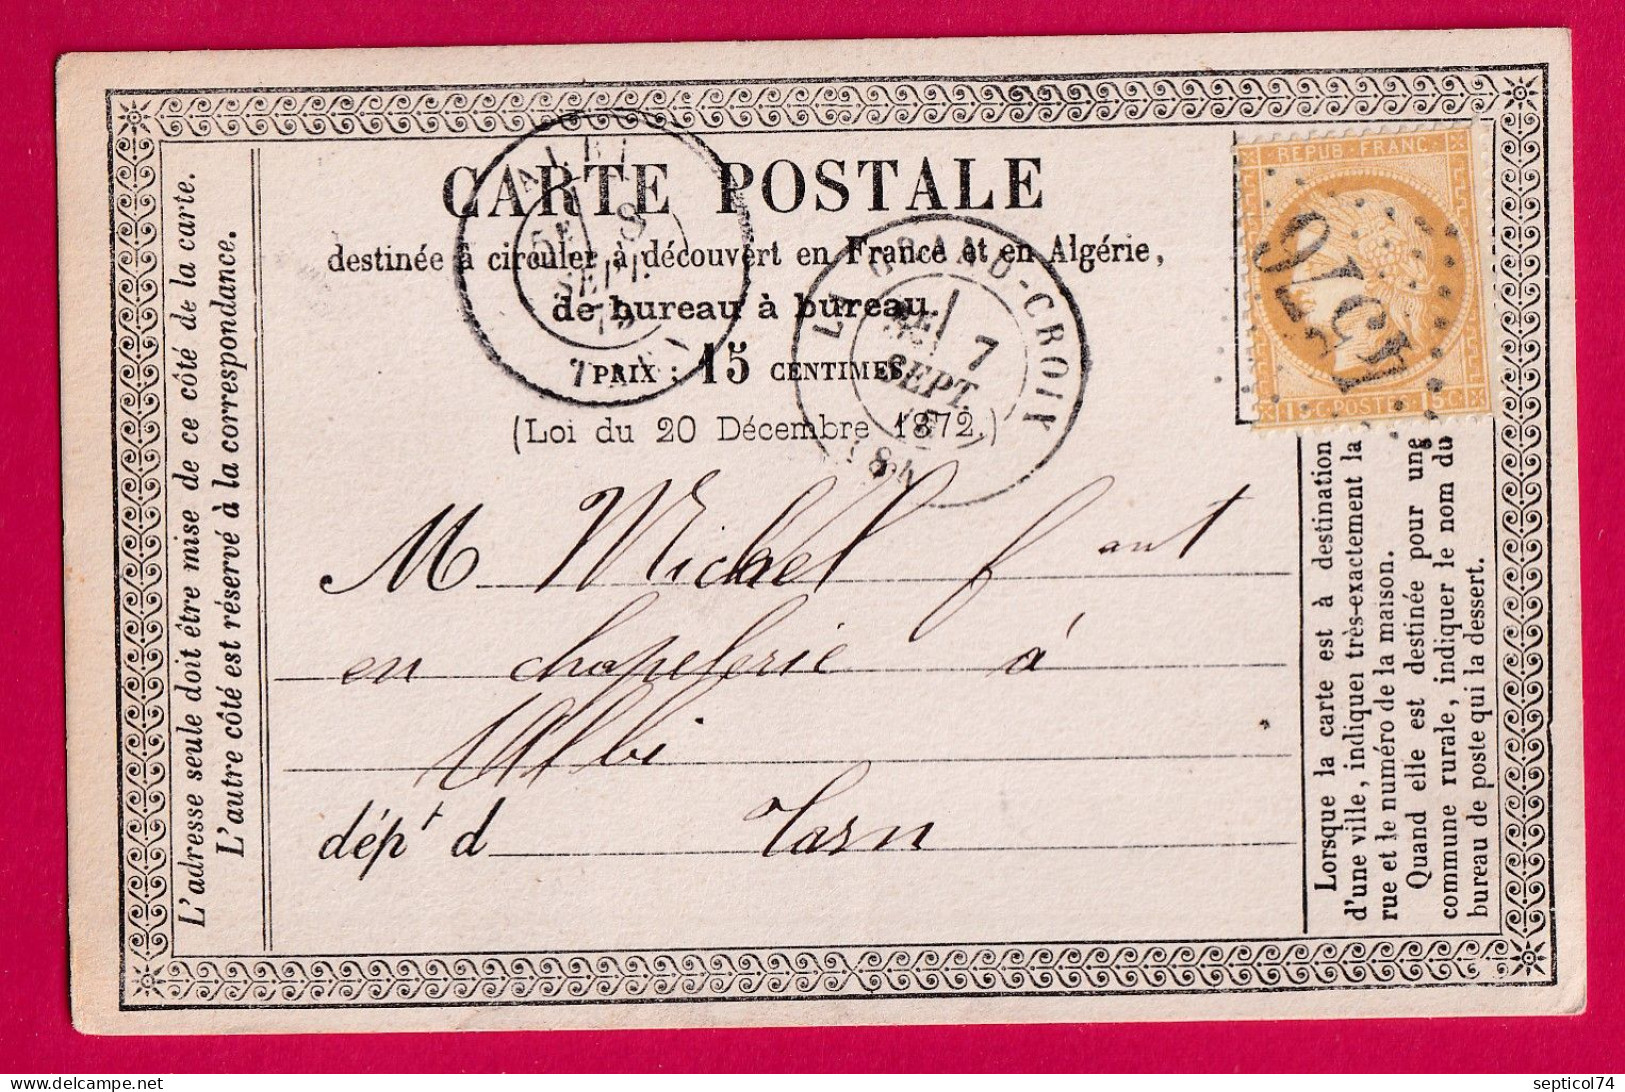 CARTE POSTALE
destinée à circuler à découvert en France et en Algérie,
de bureau à bureau.
PRIX : 15 CENTIMES.
(Loi du 20 Décembre 1872.)
ALBI
8
SEPT
LA GRAND-CROIX
7
SEPT.
(84)
REPUB·FRANC·
15 C. POSTES 15 C.
M Michel f ant
en chapelerie à
Albi
dépt d Tarn
L'adresse seule doit être mise de ce côté de la carte.
L'autre côté est réservé à la correspondance.
Lorsque la carte est à destination
d'une ville, indiquer très-exactement la
rue et le numéro de la maison.
Quand elle est destinée pour une
commune rurale, indiquer le nom du
bureau de poste qui la dessert.
delcampe.net
septicol74